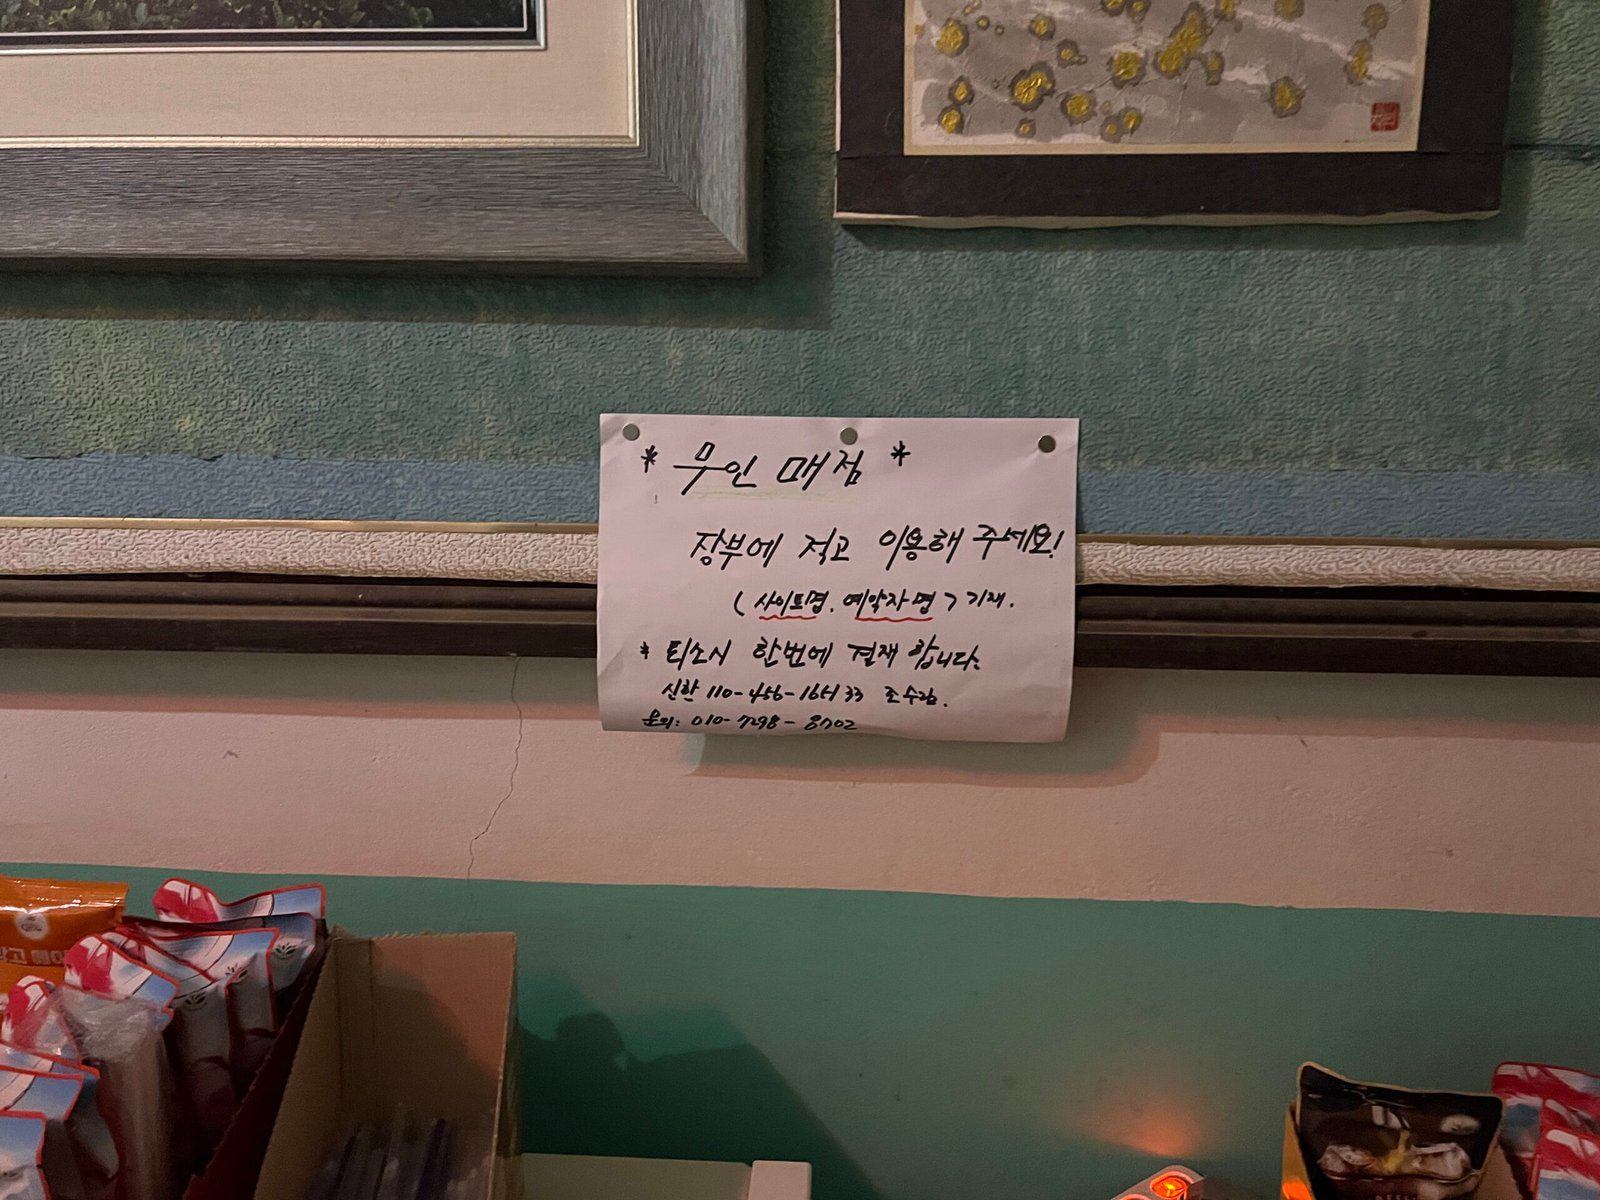 * 무인 매점 *
장부에 적고 이용해 주세요!
(사이트명, 예약자명) 기재.
* 퇴소시 한번에 결재 합니다.
신한 110-456-165133 조수림.
문의: 010-7298-8702